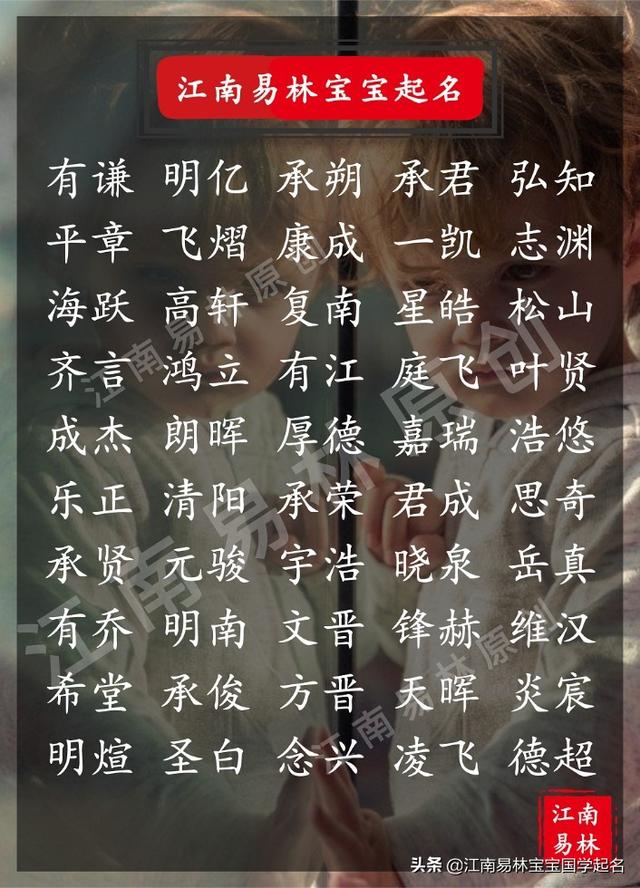 江南易林宝宝起名
有谦 明亿 承朔 承君 弘知
平章 飞熠 康成 一凯 志渊
海跃 高轩 复南 星皓 松山
齐言 鸿立 有江 庭飞 叶贤
成杰 朗晖 厚德 嘉瑞 浩悠
乐正 清阳 承荣 君成 思奇
承贤 元骏 宇浩 晓泉 岳真
有乔 明南 文晋 锋赫 维汉
希堂 承俊 方晋 天晖 炎宸
明煊 圣白 念兴 凌飞 德超
江南易林原创
江南易林原创
江南易林原创
江南
易林
头条 @江南易林宝宝国学起名